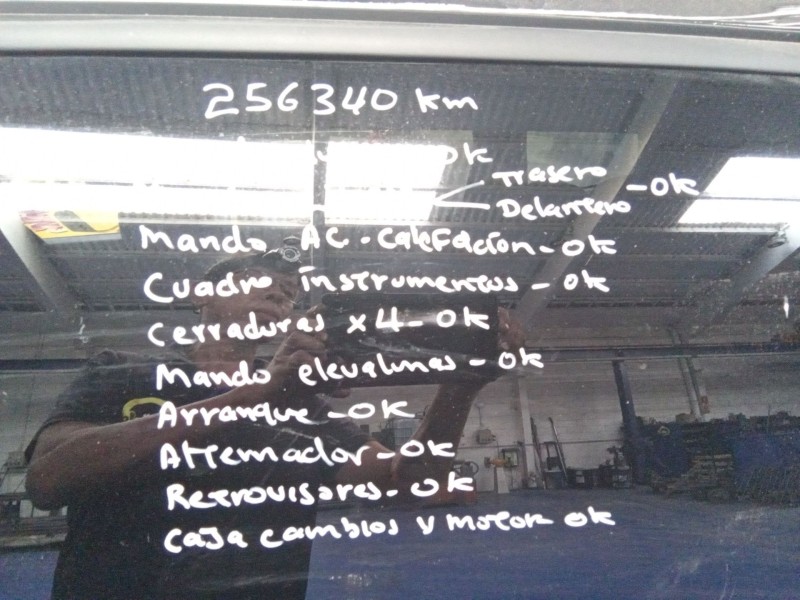 256340 km
ok
Trasero
Delantero -ok
Mando AC. Calefacion-ok
Cuadro instrumentos - ok
Cerraduras x4-ok
Mando elevalunas - ok
Arranque -ok
Alternador-ok
Retrovisores-ok
Caja cambios y motor ok